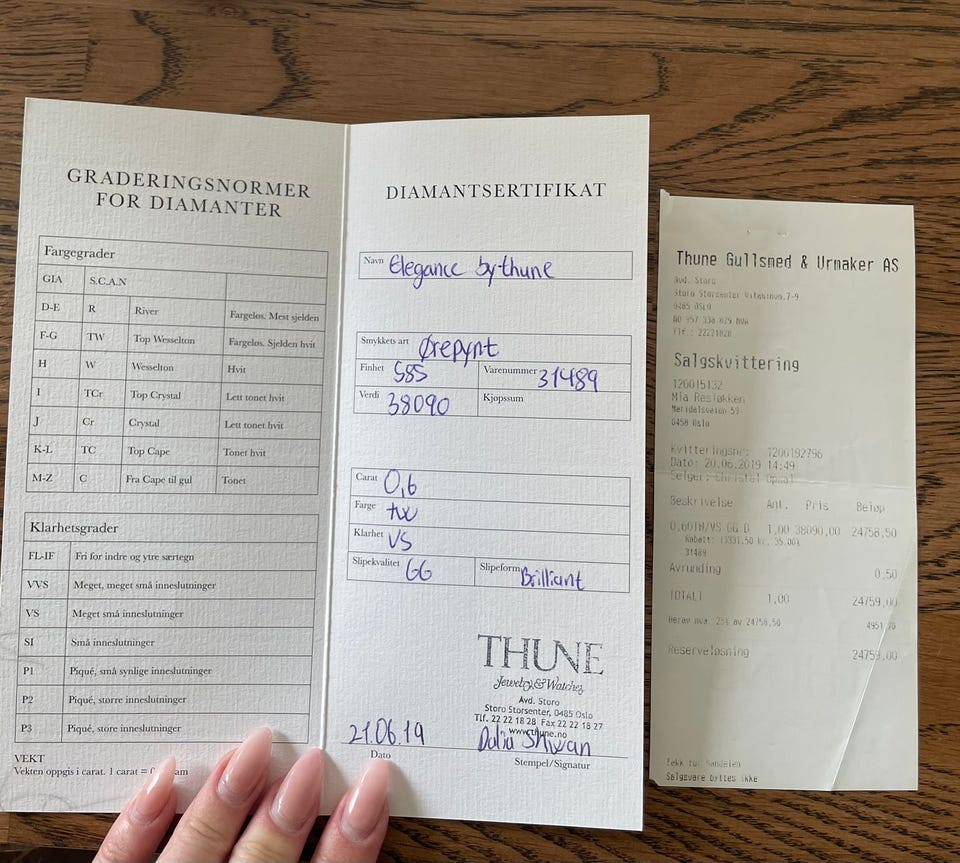 GRADERINGSNORMER
FOR DIAMANTER
Fargegrader
GIA S.C.A.N
D-E R River Fargeløs. Mest sjelden
F-G TW Top Wesselton Fargeløs. Sjelden hvit
H W Wesselton Hvit
I TCr Top Crystal Lett tonet hvit
J Cr Crystal Lett tonet hvit
K-L TC Top Cape Tonet hvit
M-Z C Fra Cape til gul Tonet
Klarhetsgrader
FL-IF Fri for indre og ytre særtegn
VVS Meget, meget små inneslutninger
VS Meget små inneslutninger
SI Små inneslutninger
P1 Piqué, små synlige inneslutninger
P2 Piqué, større inneslutninger
P3 Piqué, store inneslutninger
VEKT
Vekten oppgis i carat. 1 carat =
DIAMANTSERTIFIKAT
Navn Elegance by thune
Smykkets art Ørepynt
Finhet 585 Varenummer 31489
Verdi 38090 Kjøpssum
Carat 0,6
Farge tw
Klarhet VS
Slipekvalitet GG Slipeform Brilliant
THUNE
Jewelry & Watches
Avd. Storo
Storo Storsenter, 0485 Oslo
Tlf. 22 22 18 28 Fax 22 22 18 27
www.thune.no
21.06.19 Dalia Shwan
Dato Stempel/Signatur
Thune Gullsmed & Urmaker AS
Avd. Storo
Storo Storsenter Vitaminvn.7-9
0485 OSLO
NO 957 330 079 MVA
Tlf : 22221828
Salgskvittering
120015132
Mia Resløkken
Maridalsveien 59
0458 Oslo
Kvitteringsnr: 120192796
Dato: 20.06.2019 14:49
Selger: Christel
Beskrivelse Ant. Pris Beløp
0,60TW/VS GG D 1,00 38090,00 24758,50
Rabatt: 13331.50 kr. 35.00%
31489
Avrunding 0,50
TOTALT 1,00 24759,00
Herav mva. 25% av 24758,50 4951,70
Reserveløsning 24759,00
Takk for handelen
Salgsvare byttes ikke